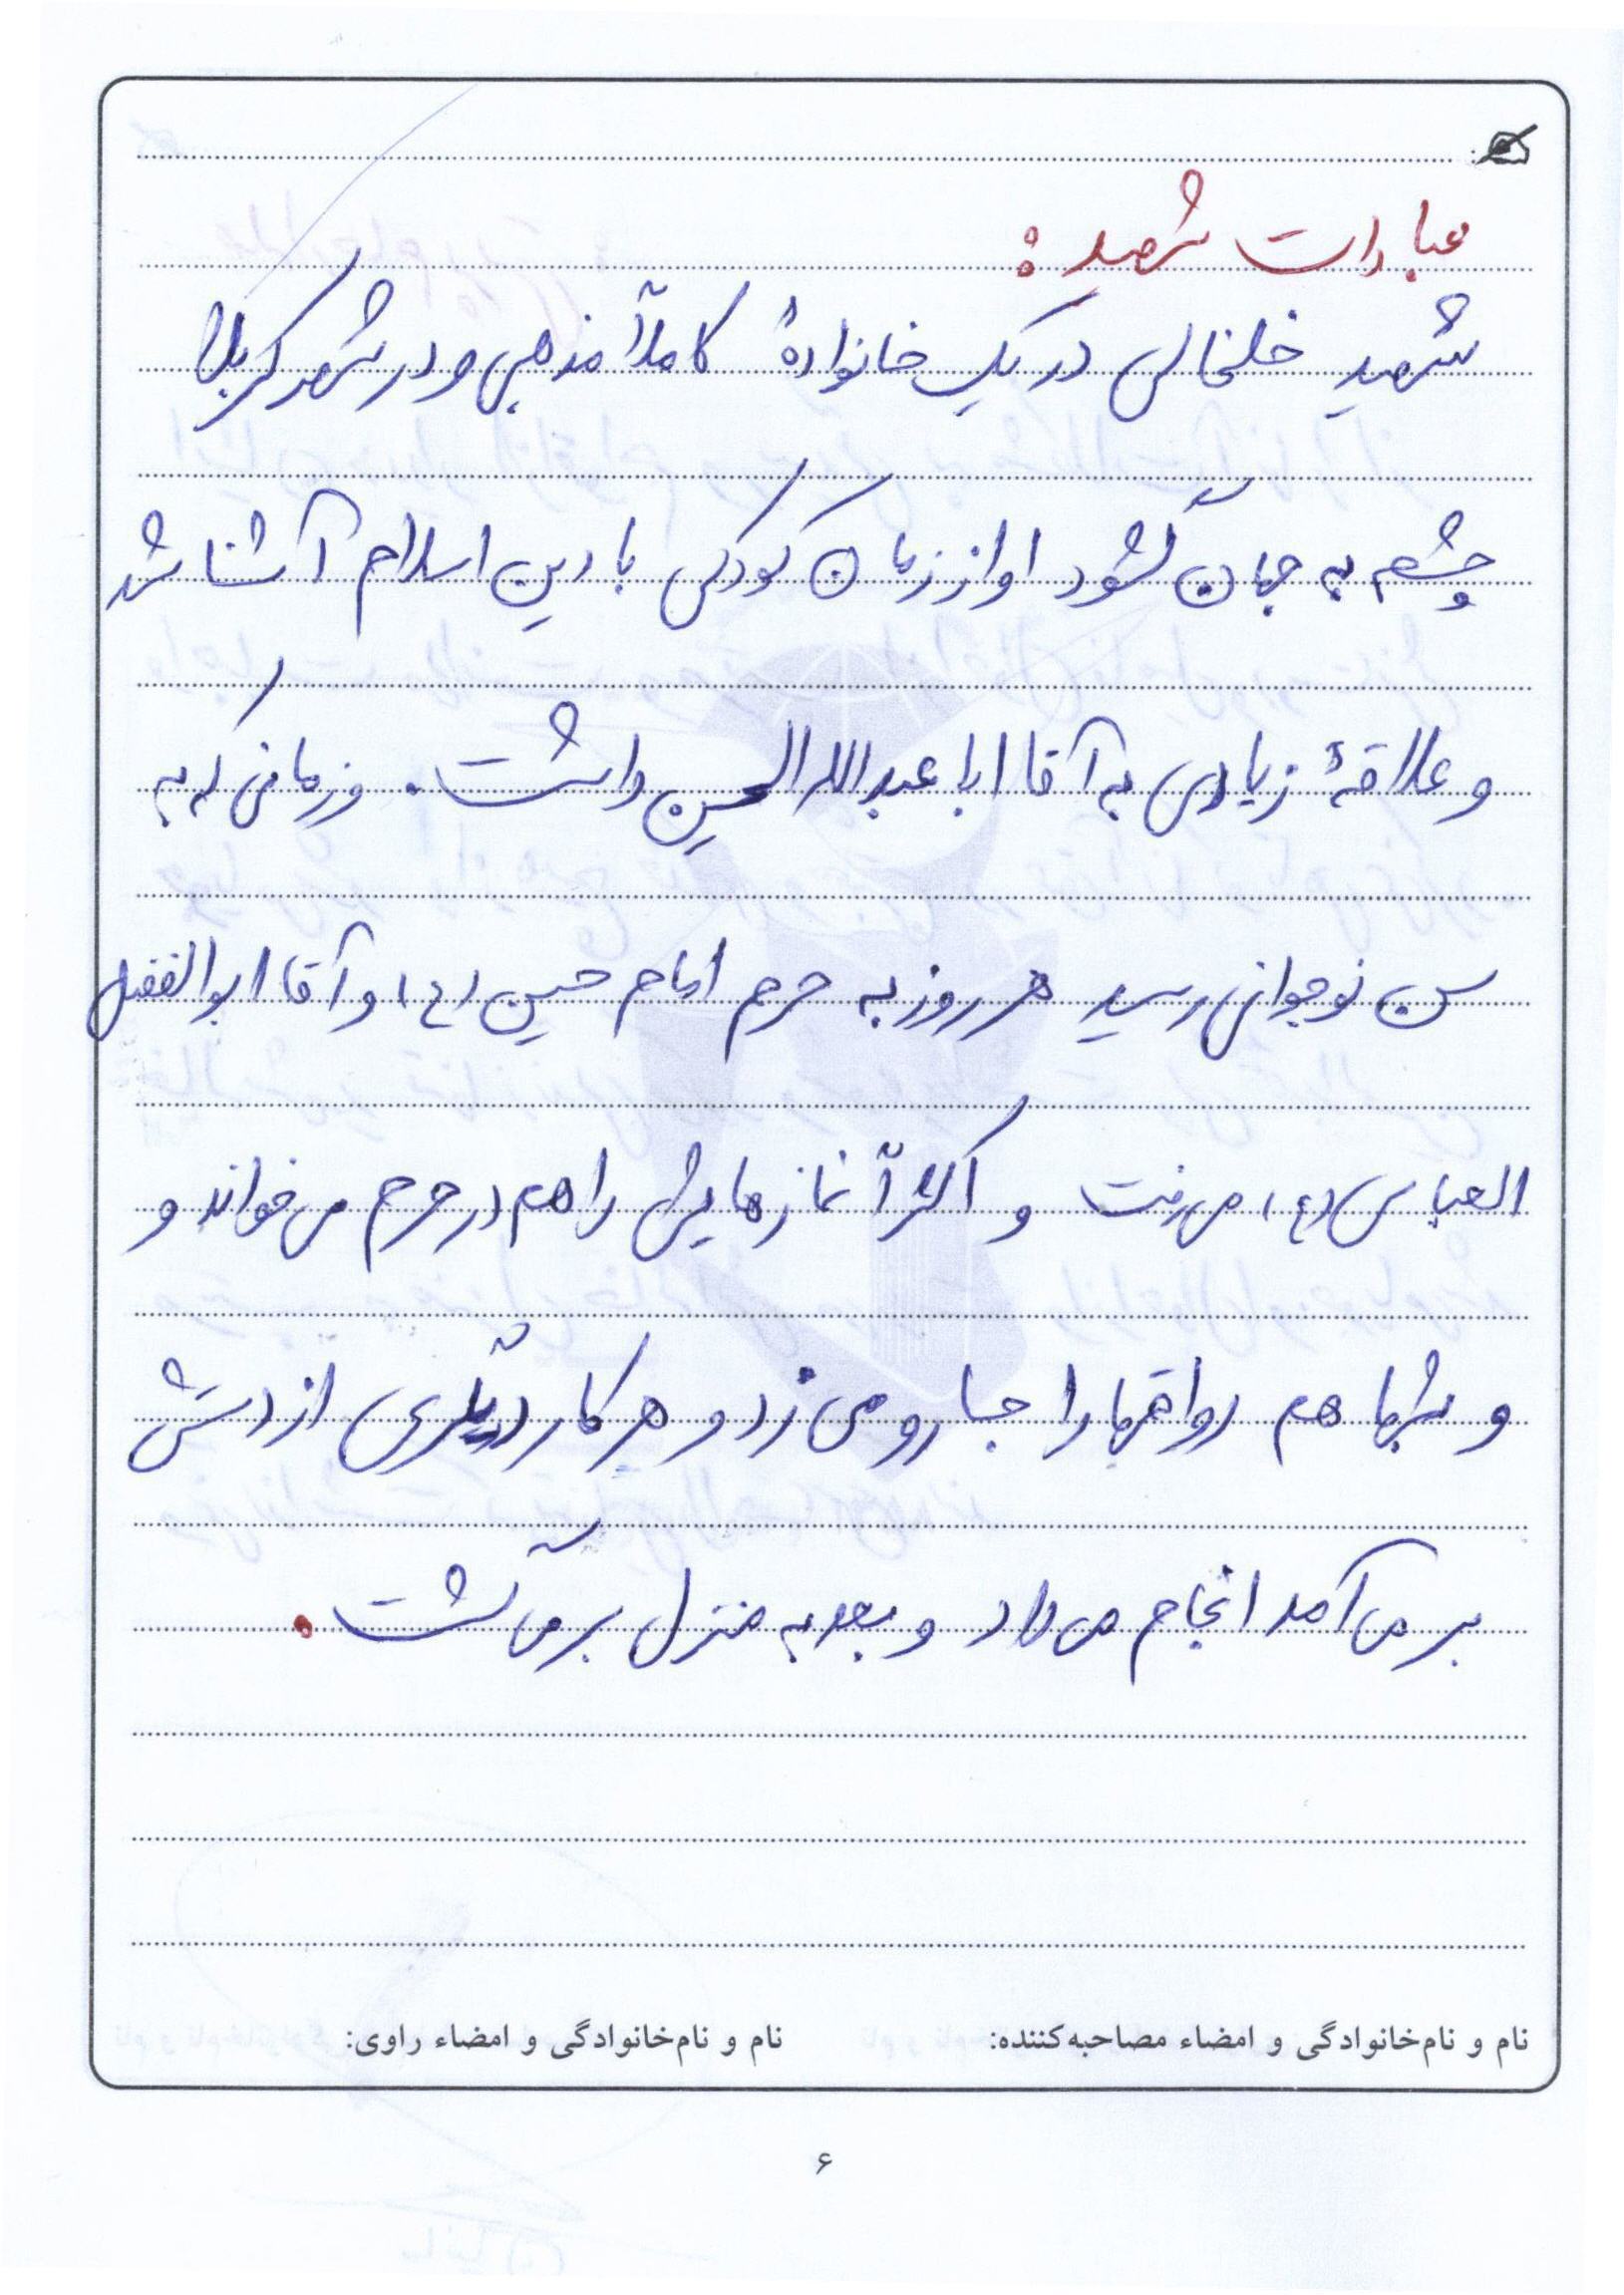 عبادات شهید :
شهید خلخالی در یک خانوادهٔ کاملاً مذهبی و در شهر کربلا
چشم به جهان گشود او از زمان کودکی با دین اسلام آشنا شد
و علاقهٔ زیادی به آقا ابا عبدالله الحسین داشت. و زمانی که به
سن نوجوانی رسید هر روز به حرم امام حسین (ع) و آقا ابوالفضل
العباس (ع) می رفت و اکثراً نمازهایش را هم در حرم می خواند و
و شبها هم رواقها را جارو می زد و هر کار دیگری از دستش
بر می آمد انجام می داد و بعد به منزل بر می گشت.
نام و نام‌خانوادگی و امضاء مصاحبه‌کننده: نام و نام‌خانوادگی و امضاء راوی:
۶